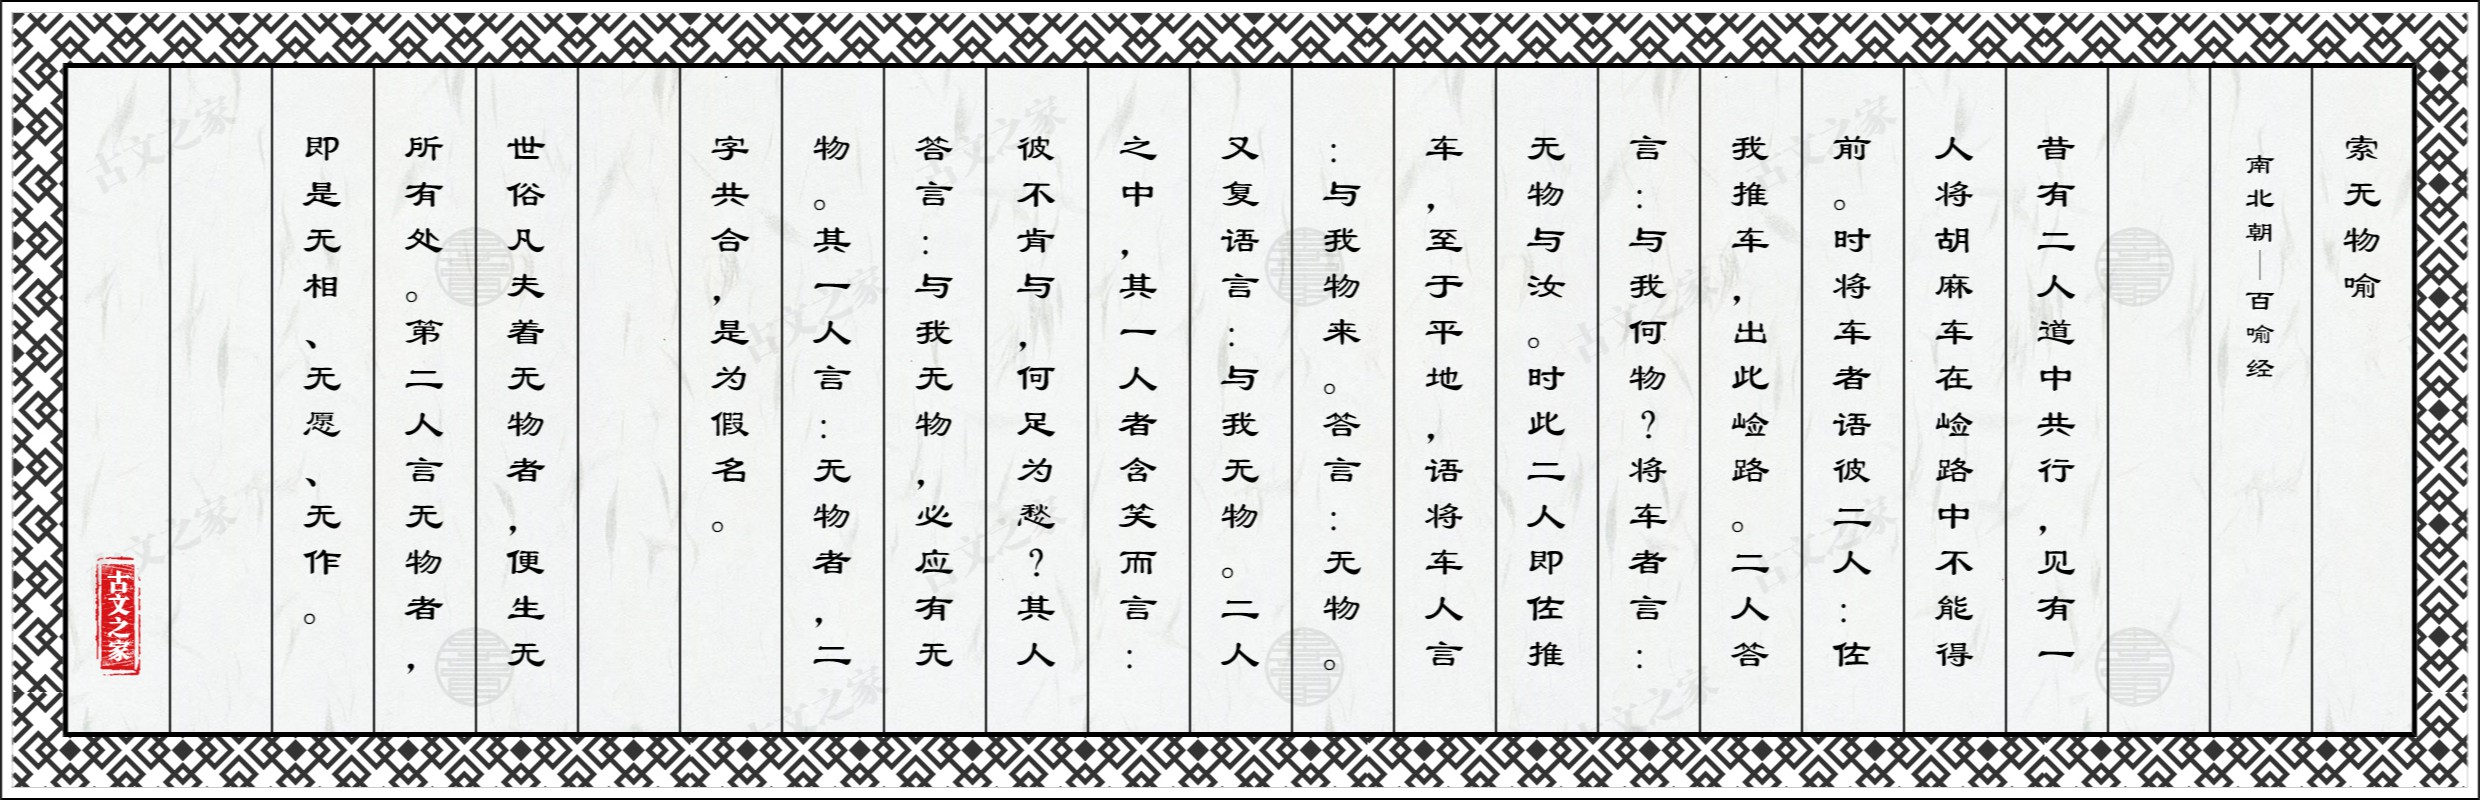 索无物喻
南北朝—百喻经
昔有二人道中共行，见有一
人将胡麻车在崄路中不能得
前。时将车者语彼二人：佐
我推车，出此崄路。二人答
言：与我何物？将车者言：
无物与汝。时此二人即佐推
车，至于平地，语将车人言
：与我物来。答言：无物。
又复语言：与我无物。二人
之中，其一人者含笑而言：
彼不肯与，何足为愁？其人
答言：与我无物，必应有无
物。其一人言：无物者，二
字共合，是为假名。
世俗凡夫着无物者，便生无
所有处。第二人言无物者，
即是无相、无愿、无作。
古文之家